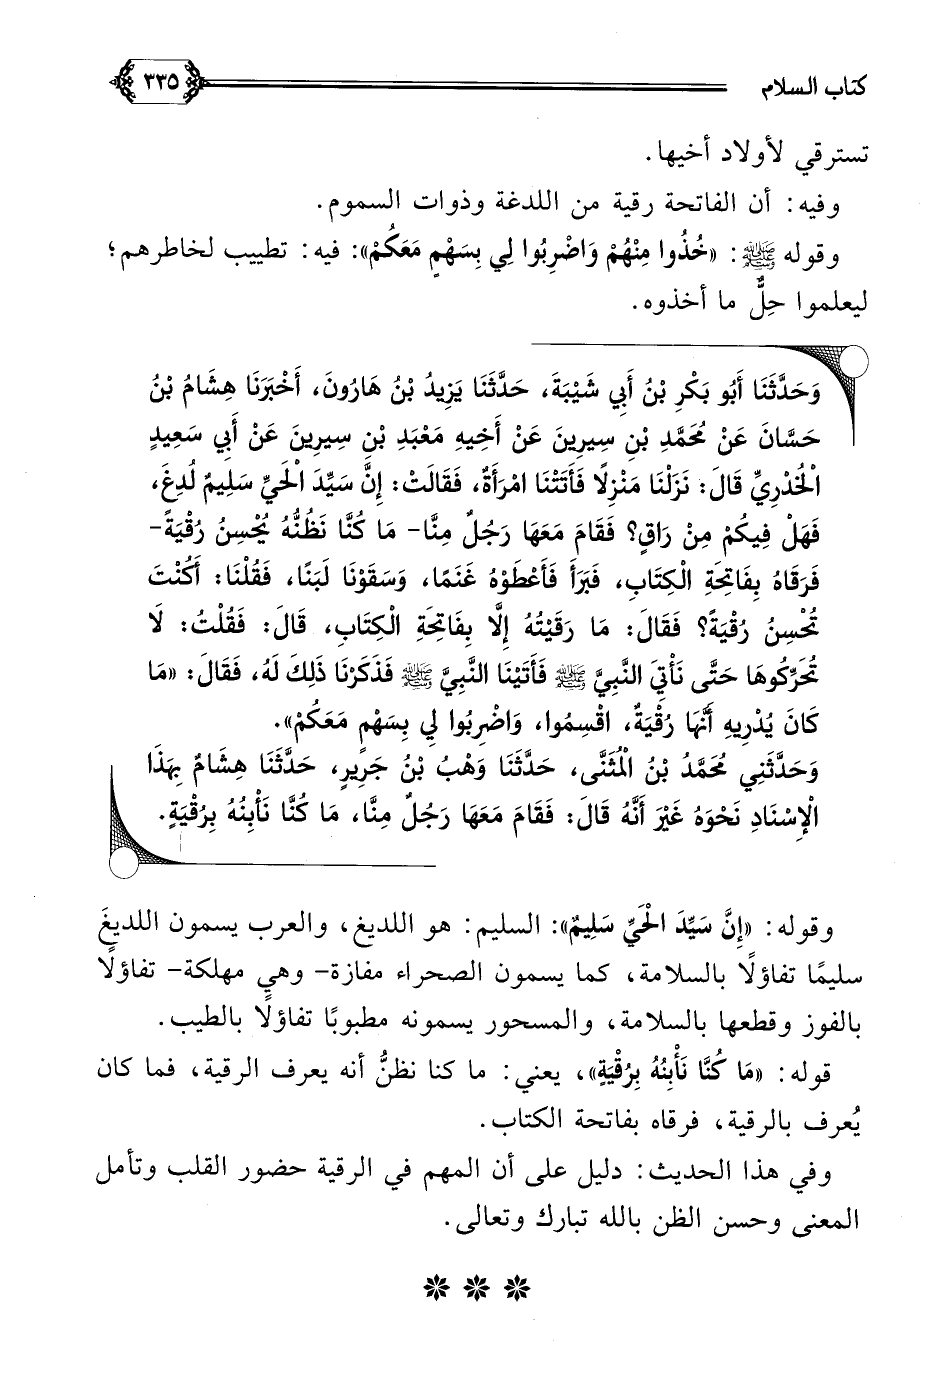 كتاب السلام
٣٣٥
تسترقي لأولاد أخيها.
وفيه: أن الفاتحة رقية من اللدغة وذوات السموم.
وقوله ﷺ: «خُذُوا مِنْهُمْ وَاضْرِبُوا لِي بِسَهْمٍ مَعَكُمْ»: فيه: تطييب لخاطرهم؛
ليعلموا حِلَّ ما أخذوه.
وَحَدَّثَنَا أَبُو بَكْرِ بْنُ أَبِي شَيْبَةَ، حَدَّثَنَا يَزِيدُ بْنُ هَارُونَ، أَخْبَرَنَا هِشَامُ بْنُ
حَسَّانَ عَنْ مُحَمَّدِ بْنِ سِيرِينَ عَنْ أَخِيهِ مَعْبَدِ بْنِ سِيرِينَ عَنْ أَبِي سَعِيدٍ
الْخُدْرِيِّ قَالَ: نَزَلْنَا مَنْزِلًا فَأَتَتْنَا امْرَأَةٌ، فَقَالَتْ: إِنَّ سَيِّدَ الْحَيِّ سَلِيمٌ لُدِغَ،
فَهَلْ فِيكُمْ مِنْ رَاقٍ؟ فَقَامَ مَعَهَا رَجُلٌ مِنَّا- مَا كُنَّا نَظُنُّهُ يُحْسِنُ رُقْيَةً-
فَرَقَاهُ بِفَاتِحَةِ الْكِتَابِ، فَبَرَأَ فَأَعْطَوْهُ غَنَمًا، وَسَقَوْنَا لَبَنًا، فَقُلْنَا: أَكُنْتَ
تُحْسِنُ رُقْيَةً؟ فَقَالَ: مَا رَقَيْتُهُ إِلَّا بِفَاتِحَةِ الْكِتَابِ، قَالَ: فَقُلْتُ: لَا
تُحَرِّكُوهَا حَتَّى نَأْتِيَ النَّبِيَّ ﷺ فَأَتَيْنَا النَّبِيَّ ﷺ فَذَكَرْنَا ذَلِكَ لَهُ، فَقَالَ: «مَا
كَانَ يُدْرِيهِ أَنَّهَا رُقْيَةٌ، اقْسِمُوا، وَاضْرِبُوا لِي بِسَهْمٍ مَعَكُمْ».
وَحَدَّثَنِي مُحَمَّدُ بْنُ الْمُثَنَّى، حَدَّثَنَا وَهْبُ بْنُ جَرِيرٍ، حَدَّثَنَا هِشَامٌ بِهَذَا
الْإِسْنَادِ نَحْوَهُ غَيْرَ أَنَّهُ قَالَ: فَقَامَ مَعَهَا رَجُلٌ مِنَّا، مَا كُنَّا نَأْبِنُهُ بِرُقْيَةٍ.
وقوله: «إِنَّ سَيِّدَ الْحَيِّ سَلِيمٌ»: السليم: هو اللديغ، والعرب يسمون اللديغَ
سليمًا تفاؤلًا بالسلامة، كما يسمون الصحراء مفازة- وهي مهلكة- تفاؤلًا
بالفوز وقطعها بالسلامة، والمسحور يسمونه مطبوبًا تفاؤلًا بالطيب.
قوله: «مَا كُنَّا نَأْبِنُهُ بِرُقْيَةٍ»، يعني: ما كنا نظنُّ أنه يعرف الرقية، فما كان
يُعرف بالرقية، فرقاه بفاتحة الكتاب.
وفي هذا الحديث: دليل على أن المهم في الرقية حضور القلب وتأمل
المعنى وحسن الظن بالله تبارك وتعالى.